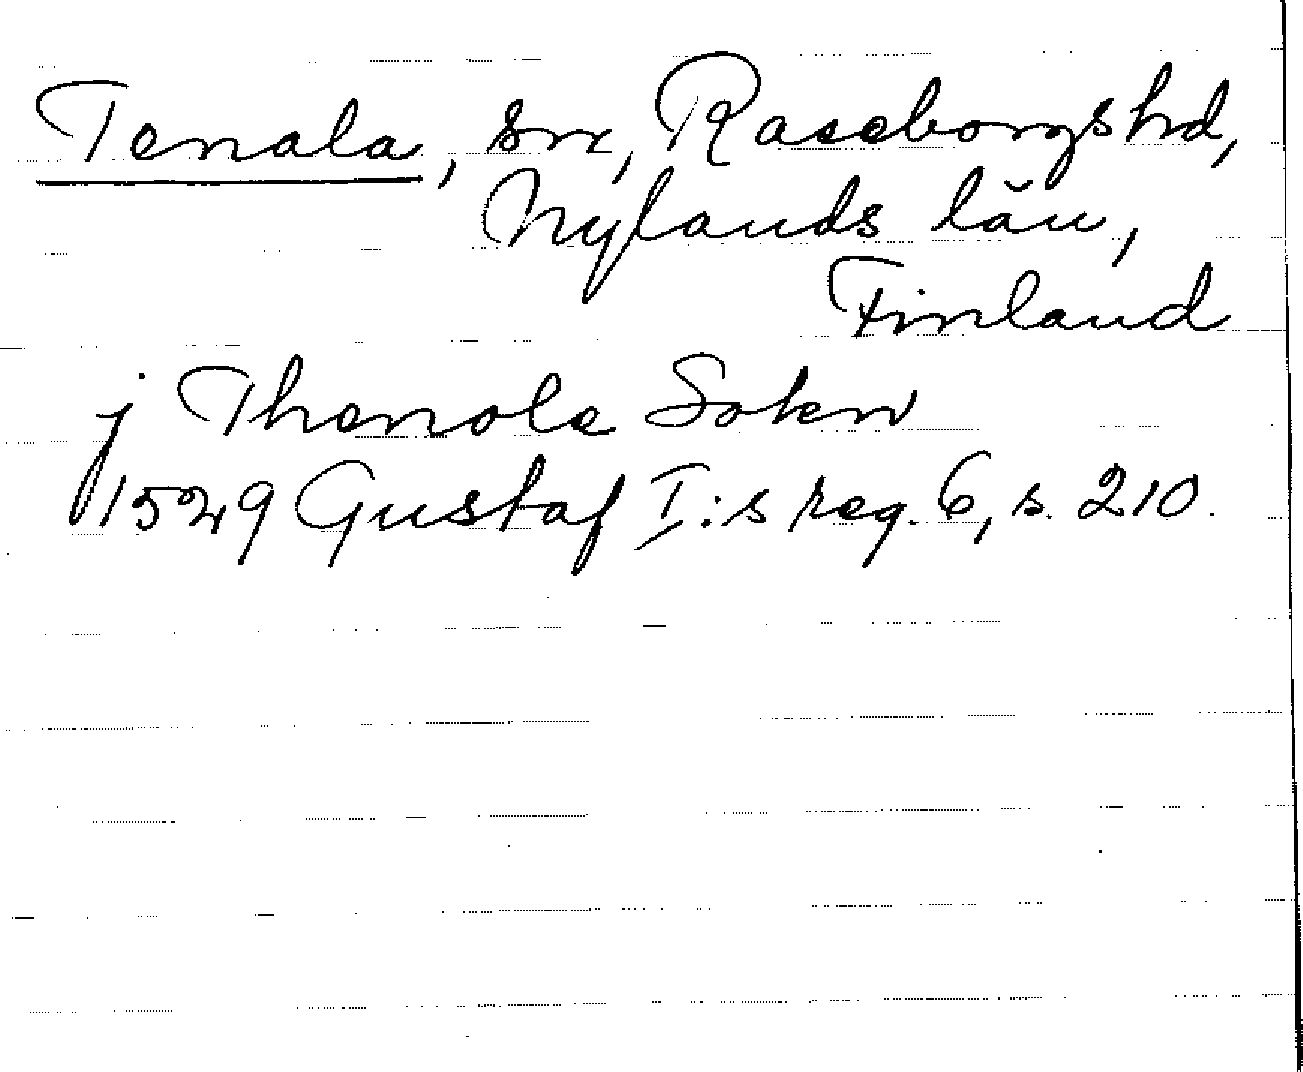 Tenala, sn, Raseborgs hd,
Nylands län,
Finland
j Thenola Sokn
1529 Gustaf I:s reg. 6, s. 210.